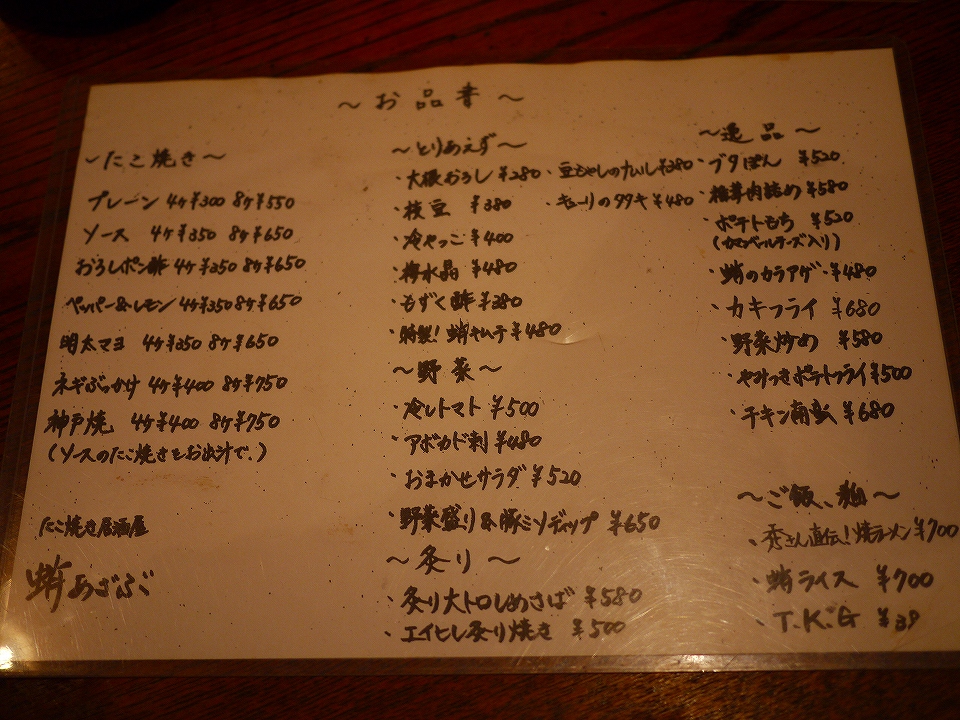 ～お品書～
～たこ焼き～
プレーン 4ケ¥300 8ケ¥550
ソース 4ケ¥350 8ケ¥650
おろしポン酢 4ケ¥350 8ケ¥650
ペッパー&レモン 4ケ¥350 8ケ¥650
明太マヨ 4ケ¥350 8ケ¥650
ネギぶっかけ 4ケ¥400 8ケ¥750
神戸焼 4ケ¥400 8ケ¥750
(ソースのたこ焼きをお出汁で。)
たこ焼き居酒屋
蛸あざぶ
～とりあえず～
・大根おろし ¥280
・豆もやしのナムル ¥380
・枝豆 ¥380
・キューリのタタキ ¥480
・冷やっこ ¥400
・梅水晶 ¥480
・もずく酢 ¥380
・特製!蛸キムチ ¥480
～野菜～
・冷しトマト ¥500
・アボカド刺 ¥480
・おまかせサラダ ¥520
・野菜盛り&豚ミソディップ ¥650
～炙り～
・炙り大トロしめさば ¥580
・エイヒレ炙り焼き ¥500
～逸品～
・ブタぽん ¥520
・椎茸肉詰め ¥580
・ポテトもち ¥520
(カマンベールチーズ入り)
・蛸のカラアゲ ¥480
・カキフライ ¥680
・野菜炒め ¥580
・やみつきポテトフライ ¥500
・チキン南蛮 ¥680
～ご飯、麺～
・秀さん直伝!焼ラーメン ¥700
・蛸ライス ¥700
・T.K.G ¥39